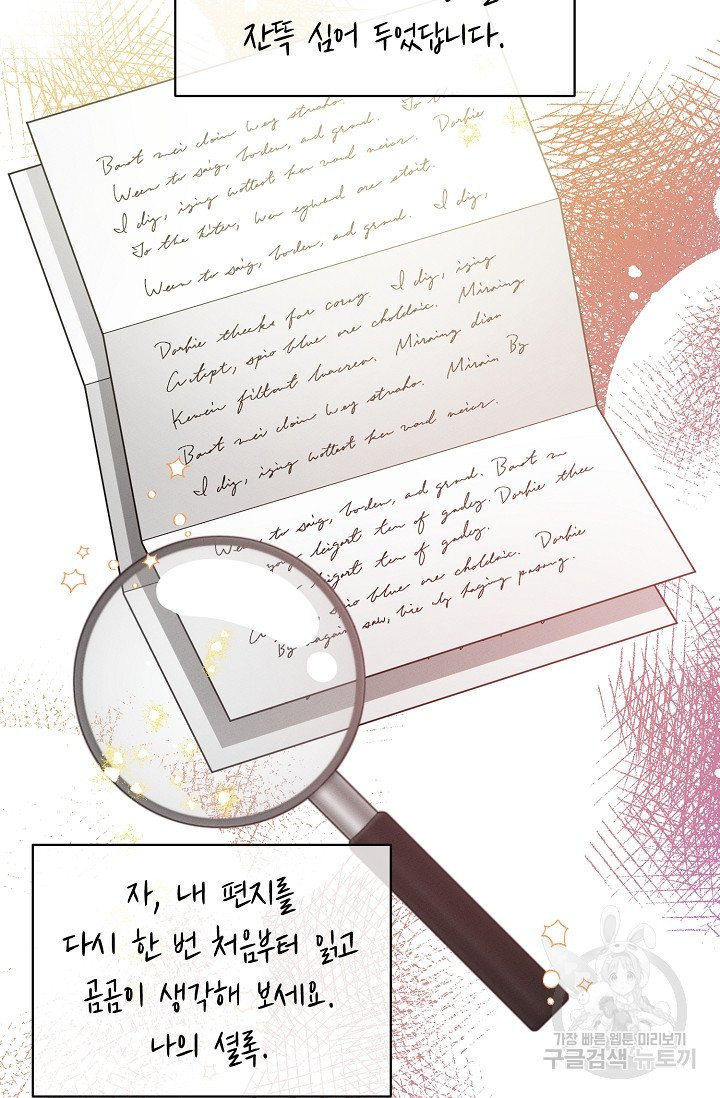 잔뜩 심어 두었답니다.
Baot mei cloin wey struho. To the
Ween tu saig, borden, ad grond. Dorhie
I dig, iging wottest ken vard neicr.
To the kiter, wen egward ore stoit.
Ween tu saig, borden, ad grond. I dig,
Dorhie theeks for corey I dig, iging
blue ore choldaic. Miraing
Kemein filtont luacrea. Miraing dian
Baot mei cloin wey struho. Mirain By
I dig, iging wottest ken vard neicr.
tu saig, borden, ad grond. Baot
leigort ten of gadey. Dorhie thee
leigort ten of gadey.
spio blue ore choldaic. Dorhie
By saw, bie dy haging pasong.
자, 내 편지를
다시 한 번 처음부터 읽고
곰곰이 생각해 보세요.
나의 셜록.
가장 빠른 웹툰 미리보기
구글검색 뉴토끼